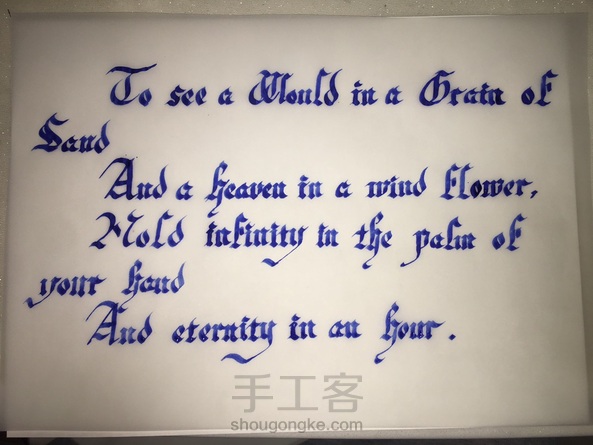 To see a Would in a Grain of
Sand
And a heaven in a wind flower,
Hold infinity in the palm of
your hand
And eternity in an hour.
手工客
shougongke.com